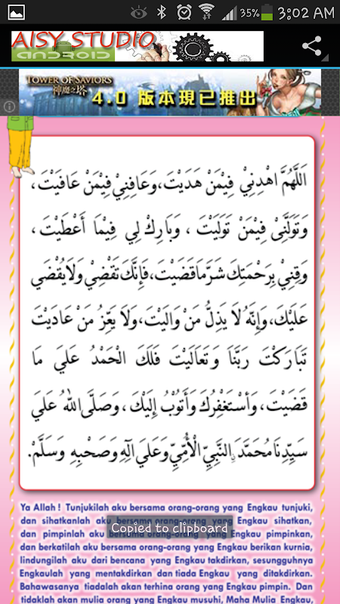 35% 3:02 AM
AISY STUDIO
ANDROID
TOWER OF SAVIORS
神魔之塔
4.0 版本現已推出
اَللّٰهُمَّ اهْدِنِيْ فِيْمَنْ هَدَيْتَ، وَعَافِنِيْ فِيْمَنْ عَافَيْتَ،
وَتَوَلَّنِيْ فِيْمَنْ تَوَلَّيْتَ، وَبَارِكْ لِي فِيْمَا أَعْطَيْتَ،
وَقِنِيْ بِرَحْمَتِكَ شَرَّمَا قَضَيْتَ، فَإِنَّكَ تَقْضِيْ وَلَا يُقْضَى
عَلَيْكَ، وَإِنَّهُ لَا يَذِلُّ مَنْ وَالَيْتَ، وَلَا يَعِزُّ مَنْ عَادَيْتَ
تَبَارَكْتَ رَبَّنَا وَتَعَالَيْتَ فَلَكَ الْحَمْدُ عَلَى مَا
قَضَيْتَ، وَأَسْتَغْفِرُكَ وَأَتُوْبُ إِلَيْكَ، وَصَلَّى اللهُ عَلَى
سَيِّدِنَا مُحَمَّدٍ النَّبِيِّ الْأُمِّيِّ وَعَلَى آلِهِ وَصَحْبِهِ وَسَلَّمْ.
Copied to clipboard
Ya Allah ! Tunjukilah aku bersama orang-orang yang Engkau tunjuki,
dan sihatkanlah aku bersama orang-orang yang Engkau sihatkan,
dan pimpinlah aku bersama orang-orang yang Engkau pimpinkan,
dan berkatilah aku bersama orang-orang yang Engkau berikan kurnia,
lindungilah aku dari bencana yang Engkau takdirkan, sesungguhnya
Engkaulah yang mentakdirkan dan tiada Engkau yang ditakdirkan.
Bahawasanya tiadalah akan terhina orang yang Engkau pimpin. Dan
tidaklah akan mulia orang yang Engkau musuhi, Maha Mulia Engkau,